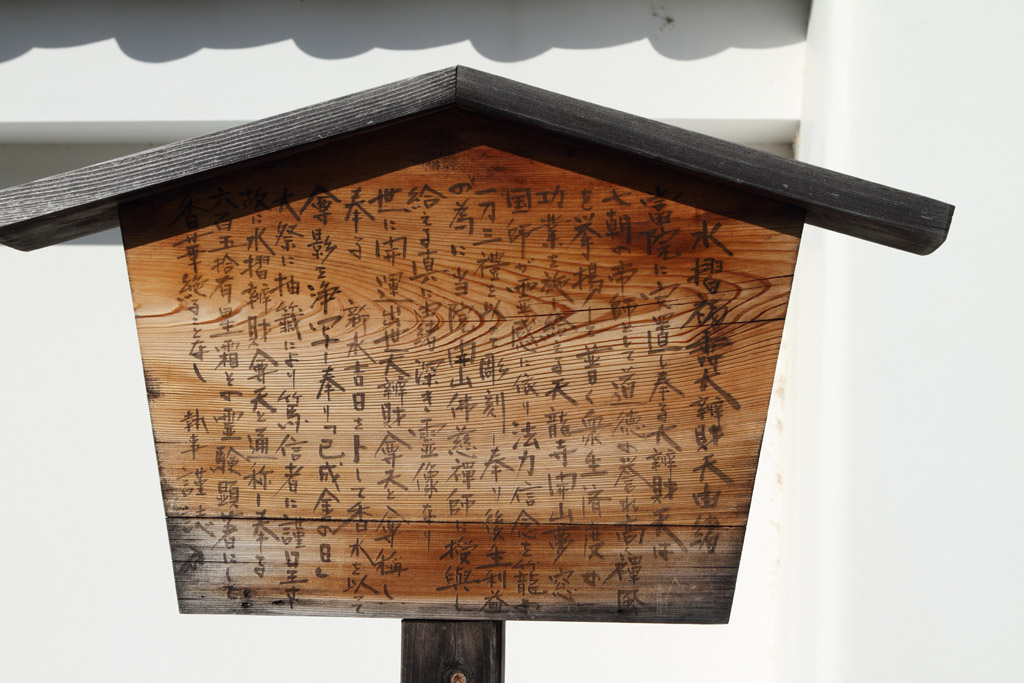 水摺福寿大辨財天由緒
當院に安置し奉る大辨財天は
七朝の帝師として道徳の誉れ高き禅師
を挙揚し普く衆生済度の
功業を施給える天龍寺開山夢窓
国師が霊感に依り法力信念を籠め
一刀三禮を以て彫刻し奉り後生利益
の為に当院開山佛慈禪師に授與し
給える真に由緒深き霊像なり
世に開運出世大辨財尊天と尊称し
奉る 新水吉日を卜して香水を以て
尊影を浄写し奉り「已成金の日」
大祭に抽籤により篤信者に謹呈す
故に水摺辨財尊天と通称し奉る
六百五拾有星霜その霊験顕著にして
香華絶ることなし 執事 謹誌